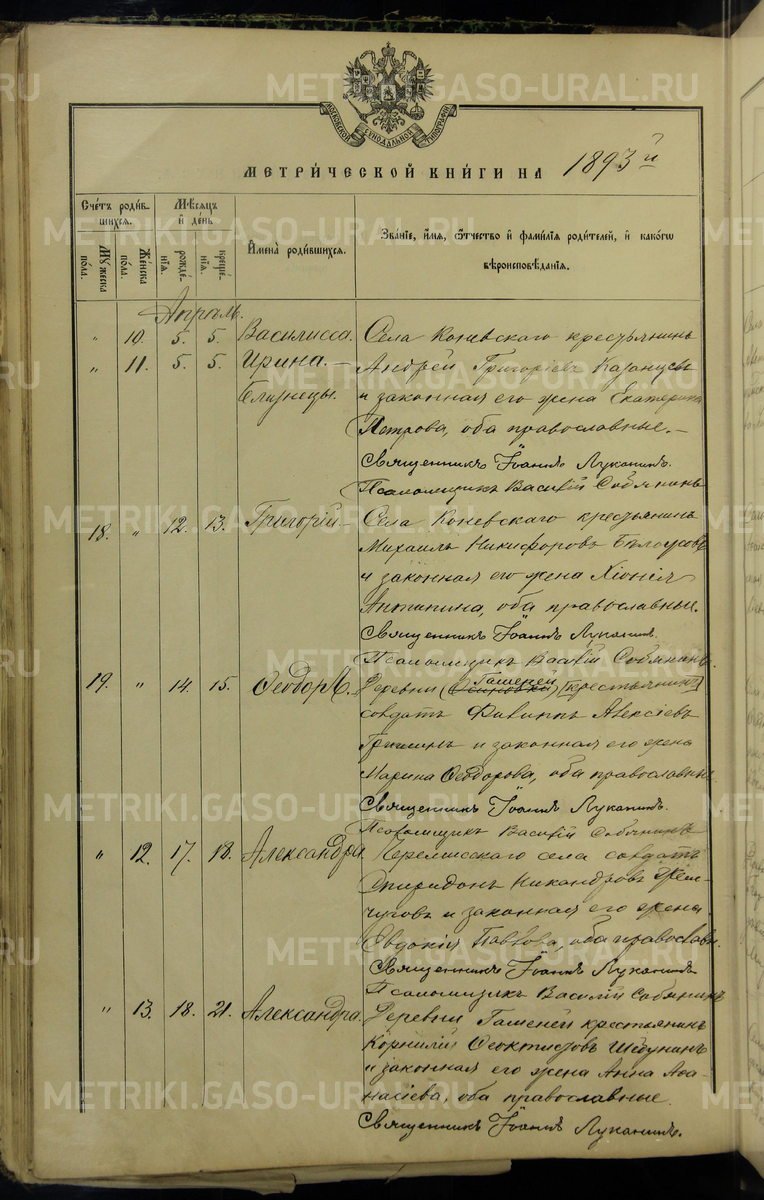 МОСКОВСКОЙ СѴНОДАЛЬНОЙ ТИПОГРАФІИ
МЕТРИ́ЧЕСКОЙ КНИ́ГИ НА 1893 й
Сче́тъ роди́вшихся.
Мѣ́сяцъ и҆ де́нь
И҆мена̀ роди́вшихся.
Зва́нїе, и҆́мя, ѻ҆́тчество и҆ фами́лїя роди́телей, и҆ како́гѡ
вѣроисповѣ́данїя.
Мꙋ́жеска по́ла.
Же́нска по́ла.
рожде́нїя.
креще́нїя.
Апрѣль.
" 10. 5. 5. Василисса. Села Коневскаго крестьянинъ
" 11. 5. 5. Ирина. — Андрей Григоріевъ Казанцевъ
Близнецы. и законная его жена Екатерина
Петрова, оба православные. —
Священникъ Іоаннъ Луканинъ.
Псаломщикъ Василій Собянинъ
18. " 12. 13. Григорій — Села Коневскаго крестьянинъ
Михаилъ Никифоровъ Бѣлоусовъ
и законная его жена Хіонія
Антипина, оба православные.
Священникъ Іоаннъ Луканинъ.
Псаломщикъ Василій Собянинъ.
19. " 14. 15. Ѳеодоръ. Деревни (Осиновки) Гашеней [крестьянинъ]
солдатъ Филиппъ Алексіевъ
и законная его жена
Марина Ѳеодорова, оба православные
Священникъ Іоаннъ Луканинъ.
Псаломщикъ Василій Собянинъ
" 12. 17. 18. Александра. Черемисскаго села солдатъ
Спиридонъ Никандровъ Жем-
чуговъ и законная его жена
Евдокія Павлова, оба православн.
Священникъ Іоаннъ Луканинъ
Псаломщикъ Василій Собянинъ
" 13. 18. 21. Александра. Деревни Гашеней крестьянинъ
Корнилій Ѳеоктистовъ Шедунинъ
и законная его жена Анна Аѳа-
насіева, оба православные.
Священникъ Іоаннъ Луканинъ.
METRIKI.GASO-URAL.RU